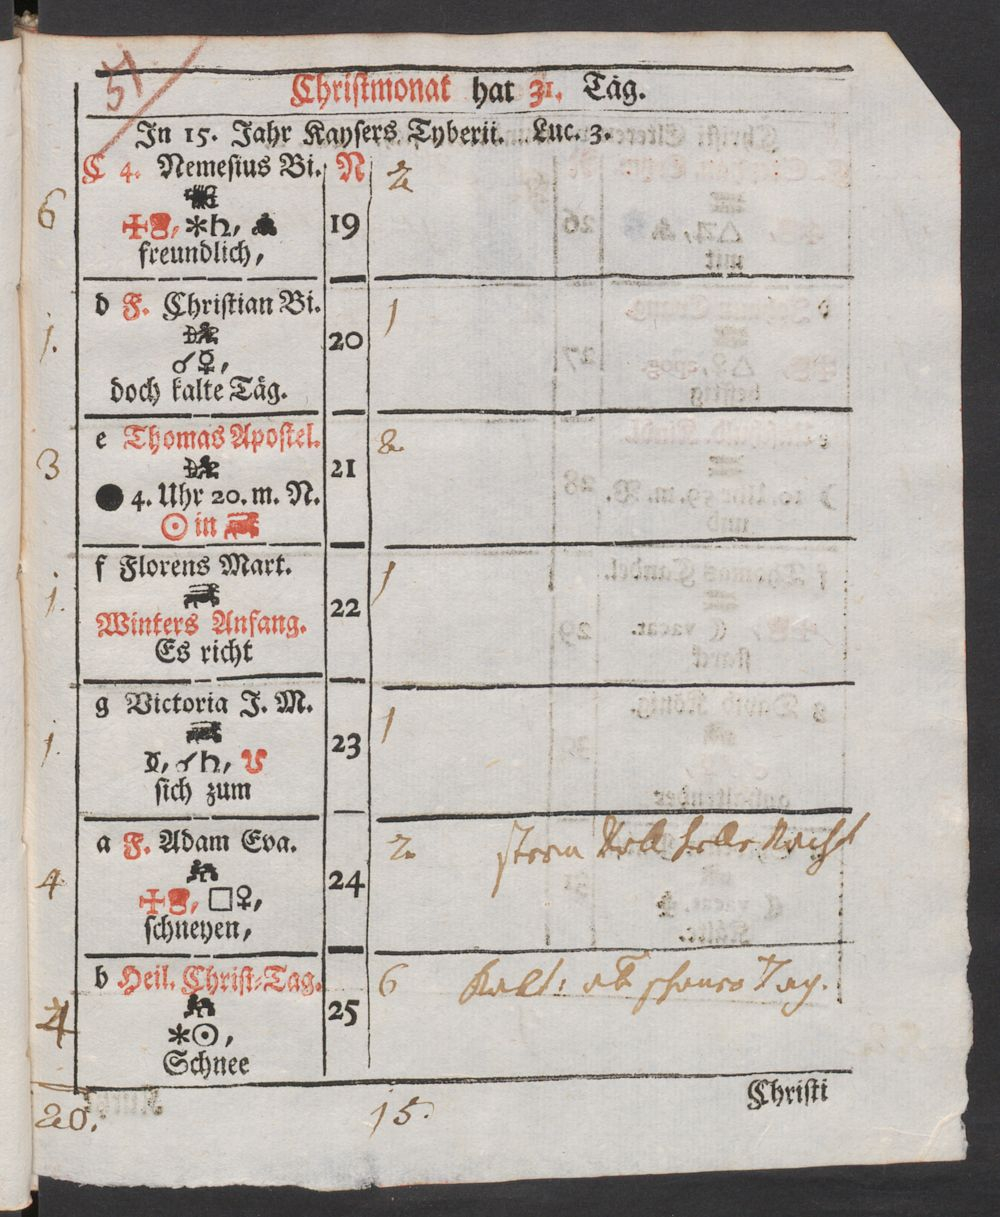 51
Christmonat hat 31. Täg.
In 15. Jahr Kaysers Tyberii. Luc. 3.
C 4. Nemesius Bi. N 2
6
19
freundlich,
d F. Christian Bi. 1
1. 20
☌☿,
doch kalte Täg.
e Thomas Apostel. 2
3 21
● 4. Uhr 20. m. N.
☉ in
f Florens Mart. 1
1. 22
Winters Anfang.
Es richt
g Victoria J. M. 1
1. 23
☌♄, ♉
sich zum
a F. Adam Eva. 2. Nacht
4 24
□♀,
schneyen,
b Heil. Christ-Tag. 6 Kalt: Tag.
4 25
✻☉,
Schnee
Christi
20. 15.